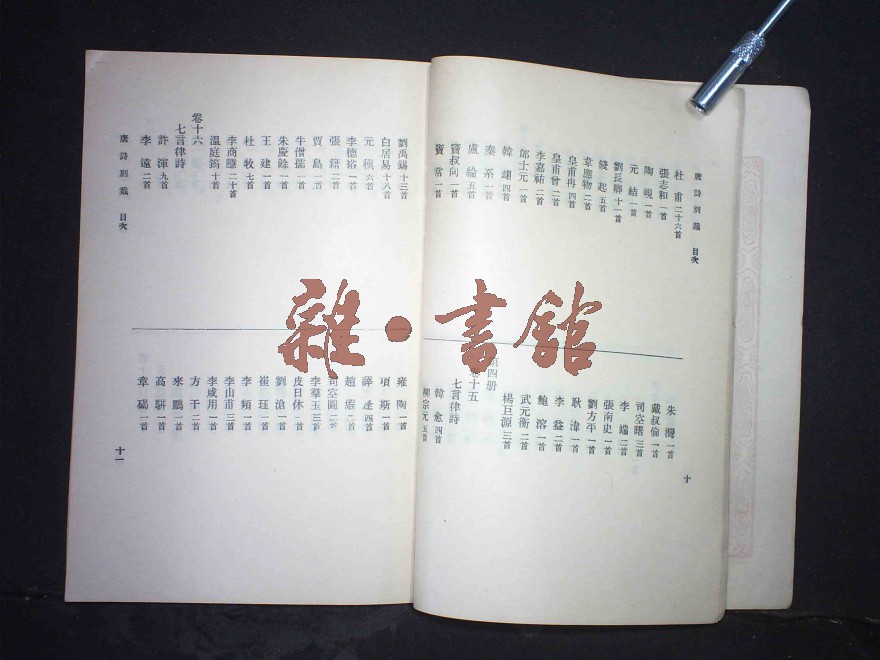 唐詩別裁 目次
杜甫 二十六首
張志和 一首
陶峴 一首
元結 一首
劉長卿 十一首
錢起 五首
韋應物 二首
皇甫冉 四首
皇甫曾 二首
李嘉祐 二首
郎士元 一首
韓翃 四首
秦系 一首
盧綸 五首
竇叔向 一首
竇常 一首
朱灣 一首
戴叔倫 一首
司空曙 三首
李端 二首
張南史 一首
劉方平 一首
耿湋 一首
李益 二首
鮑溶 一首
武元衡 二首
楊巨源 三首
第四册
卷十五
七言律詩
韓愈 四首
柳宗元 五首
十
劉禹錫 十三首
白居易 十八首
元稹 六首
李德裕 一首
張籍 二首
賈島 一首
牛僧孺 一首
朱慶餘 一首
王建 一首
杜牧 七首
李商隱 二十首
溫庭筠 十首
卷十六
七言律詩
許渾 九首
李遠 二首
唐詩別裁 目次
雍陶 一首
項斯 一首
薛逢 四首
趙嘏 二首
司空圖 二首
李羣玉 三首
皮日休 一首
劉滄 一首
崔珏 一首
李頻 一首
李山甫 三首
李咸用 一首
方干 二首
來鵬 一首
高駢 一首
章碣 一首
十一
雜·書館